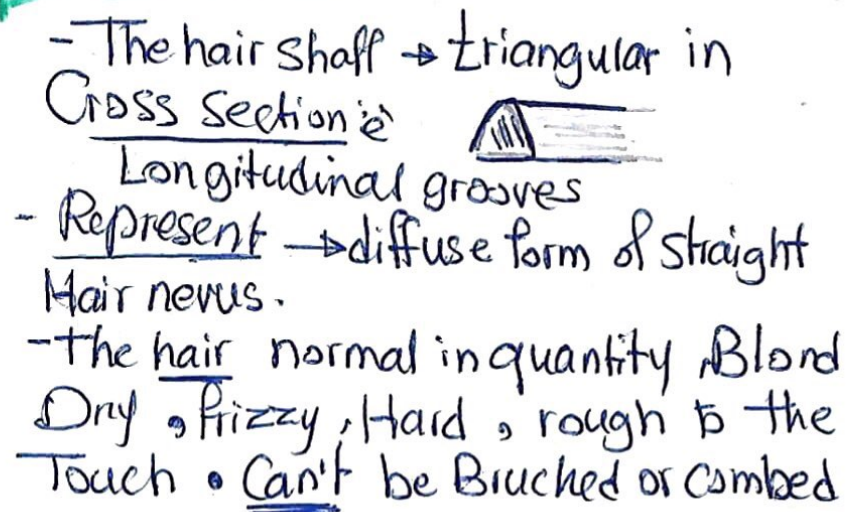 - The hair shaft → triangular in
Cross section ē
Longitudinal grooves
- Represent → diffuse form of straight
Hair nevus.
- the hair normal in quantity, Blond
Dry, frizzy, Hard, rough to the
Touch. Can't be Bruched or combed